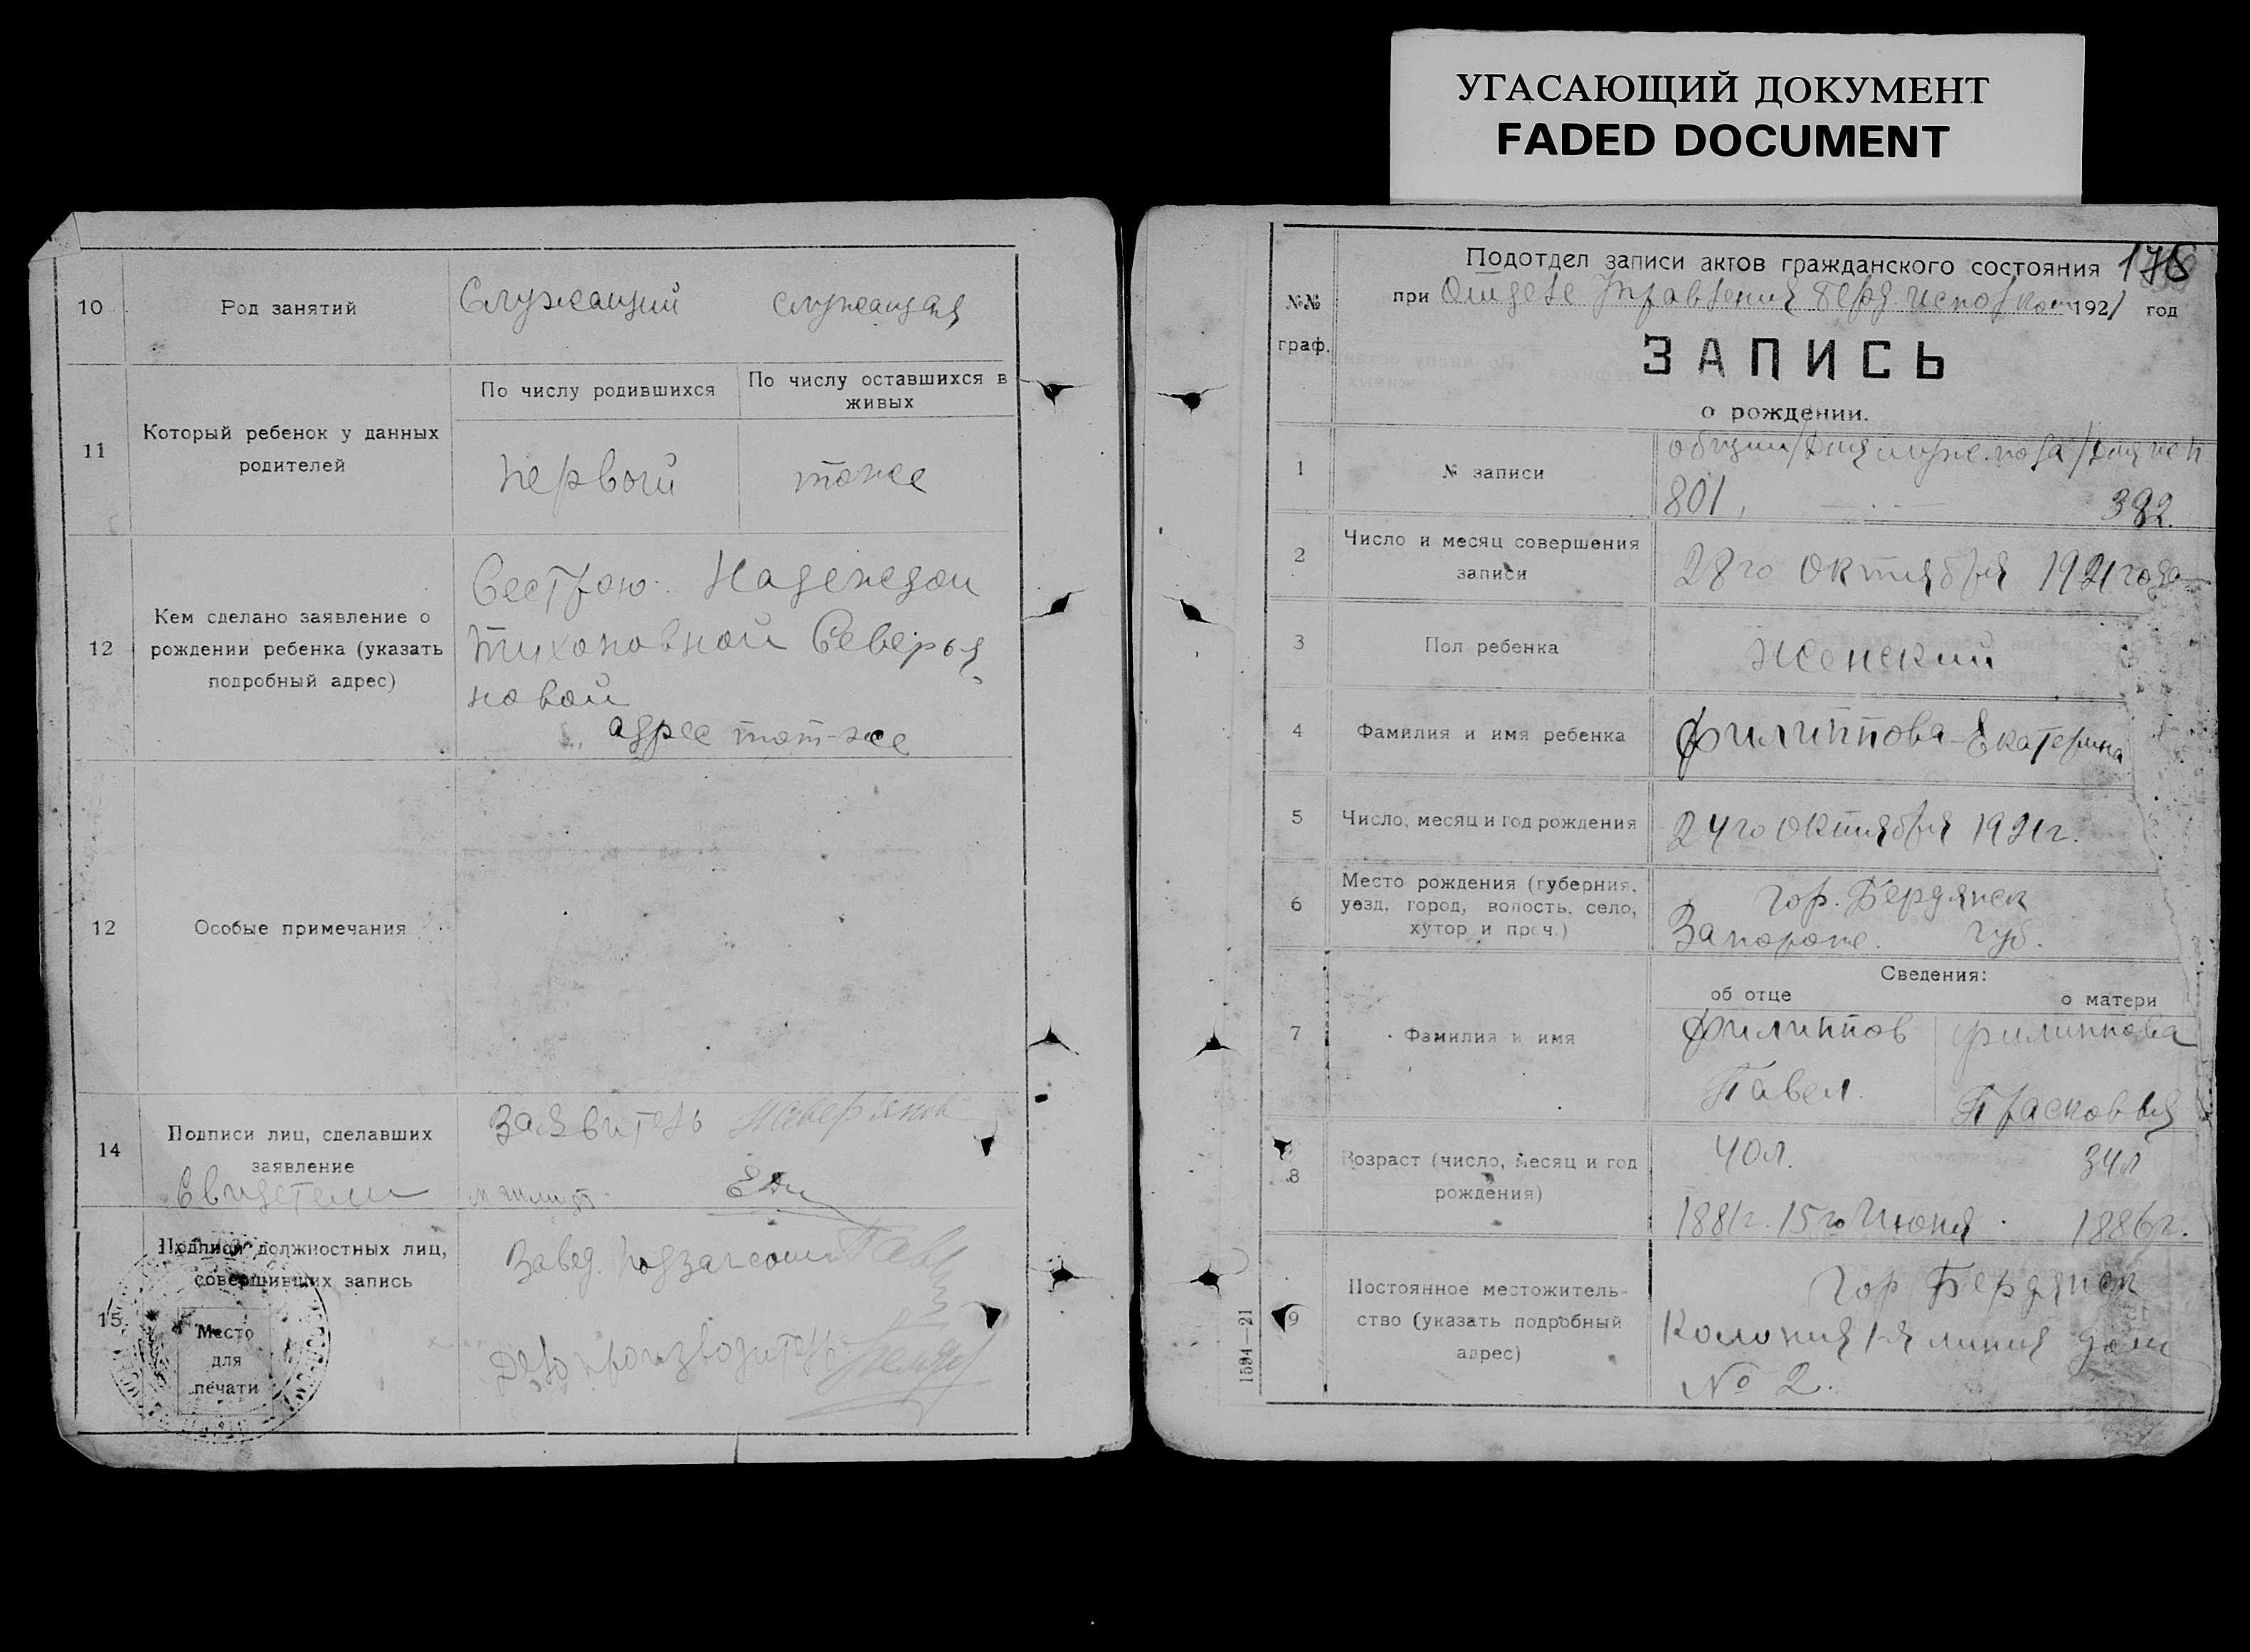 УГАСАЮЩИЙ ДОКУМЕНТ
FADED DOCUMENT
10
Род занятий
Служащий
служащая
11
Который ребенок у данных
родителей
По числу родившихся
По числу оставшихся в
живых
первой
тоже
12
Кем сделано заявление о
рождении ребенка (указать
подробный адрес)
Сестрою Надеждой
Тихоновной Северья
новой
адрес тот-же
12
Особые примечания
14
Подписи лиц, сделавших
заявление
Свидетели
Заявитель
15.
Подписи должностных лиц,
совершивших запись
Место
для
печати
Завед. подзагсом
Делопроизводитель
№№
граф.
Подотдел записи актов гражданского состояния
при Отделе Управления Берд. исполком 1921 год
ЗАПИСЬ
о рождении.
1
№ записи
общий/для муже. пола/для жен
801,
392.
2
Число и месяц совершения
записи
28го октября 1921 года
3
Пол ребенка
женский
4
Фамилия и имя ребенка
Филиппова-Екатерина
5
Число, месяц и год рождения
24го октября 1921г.
6
Место рождения (губерния,
уезд, город, волость, село,
хутор и проч.)
гор. Бердянск
Запорож. губ.
7
Фамилия и имя
Сведения:
об отце
о матери
Филиппов
Филиппова
Павел.
Прасковья
8
Возраст (число, месяц и год
рождения)
40л.
34л
1881г. 15го Июня.
1886г.
9
Постоянное местожитель-
ство (указать подробный
адрес)
Гор Бердянск
Колония 1-я линия дом
№ 2.
1594—21